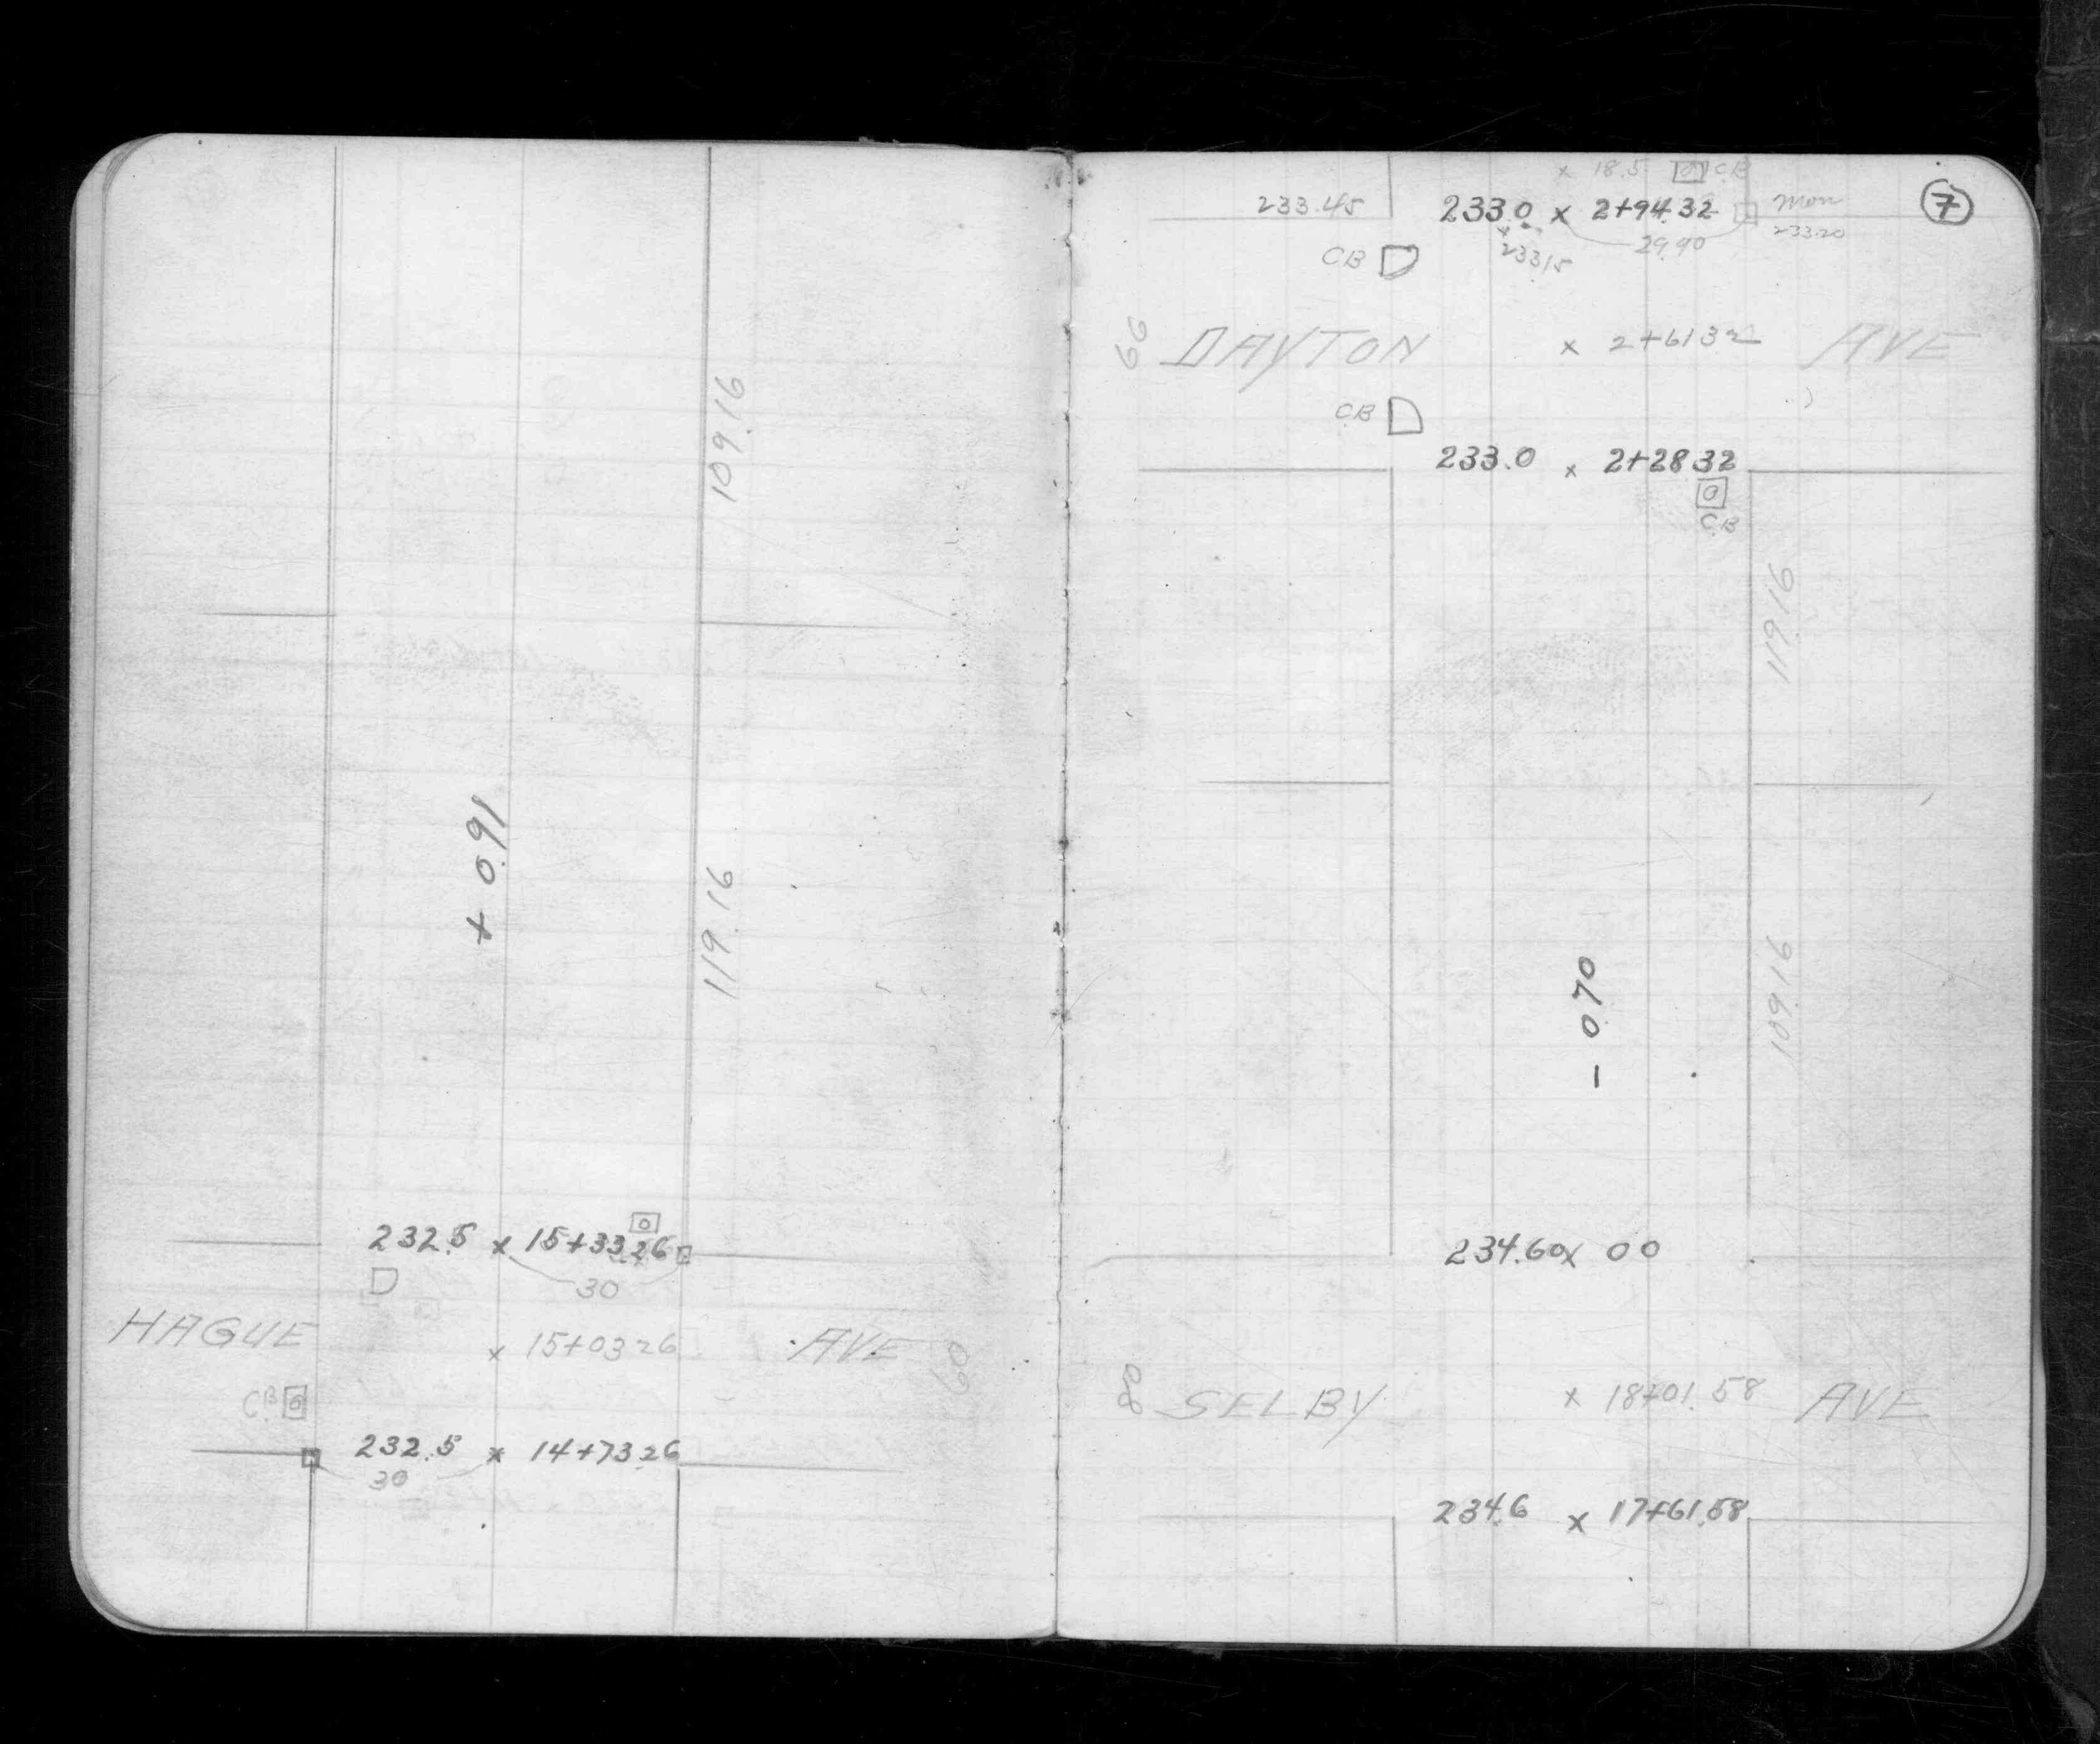 109.16
+ 0.91
119.16
232.5 x 15+33.26
30
HAGUE x 15+03.26 AVE 60
C.B.
232.5 x 14+73.26
30
x 18.5 CB
7
233.45 233.0 x 2+94.32 Mon
233.20
233.15 29.90
CB
66 DAYTON x 2+61.32 AVE
C.B
233.0 x 2+28.32
C.B
119.16
109.16
- 0.70
234.60 x 00
80 SELBY x 18+01.58 AVE
234.6 x 17+61.58